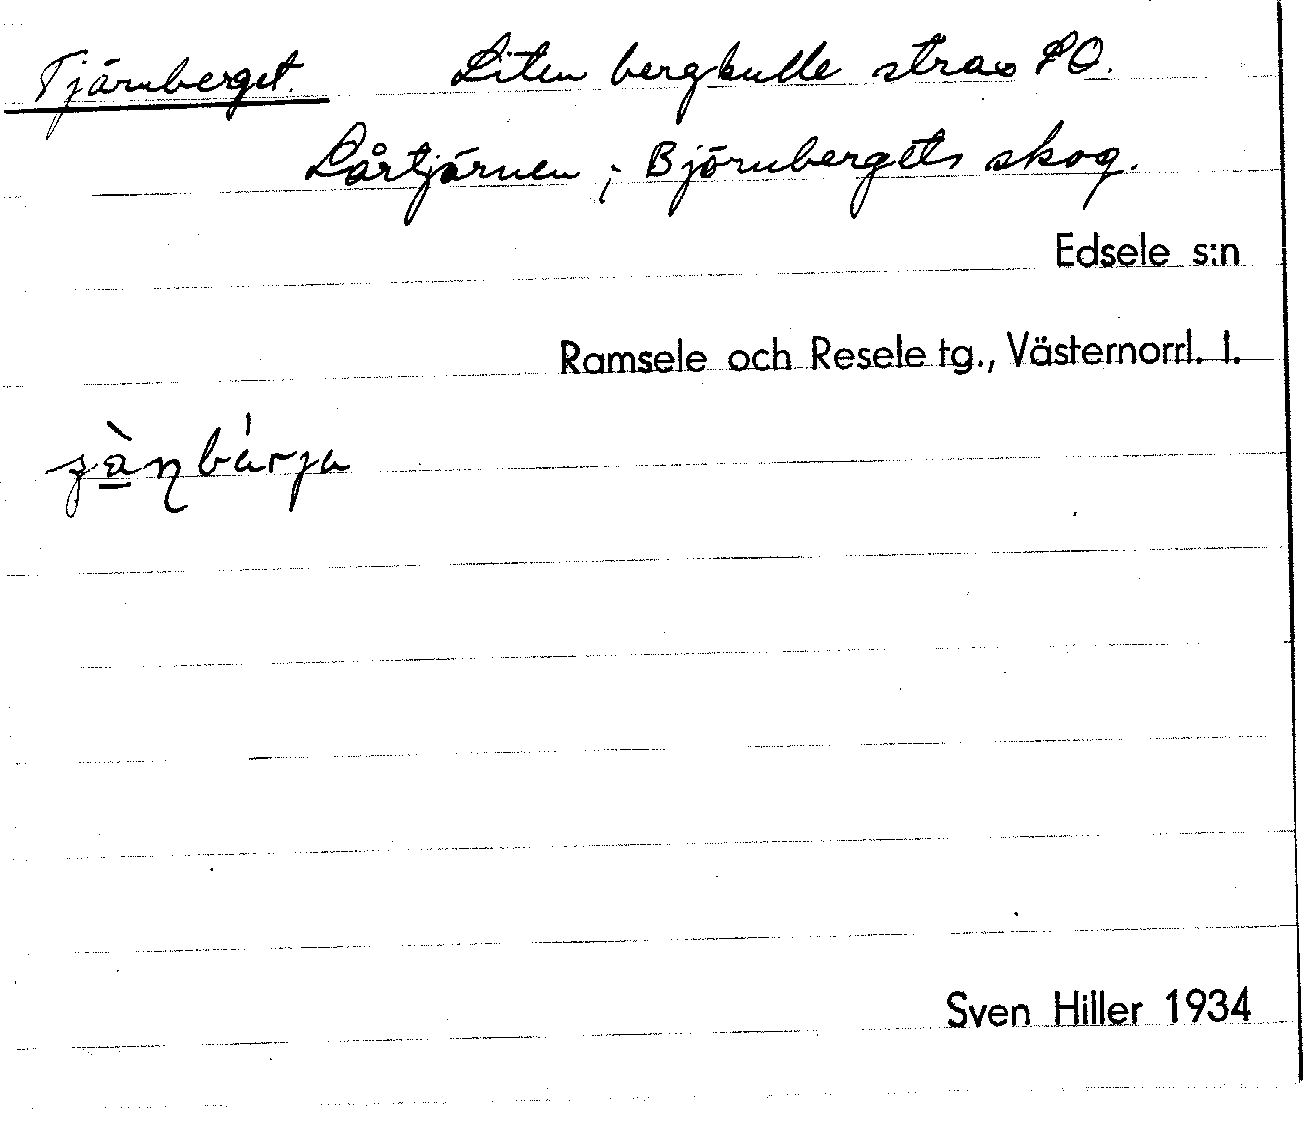 Tjärnberget. Liten bergkulle strax SO.
Lårtjärnen, Björnbergets skog.
Edsele s:n
Ramsele och Resele tg., Västernorrl. l.
Sven Hiller 1934